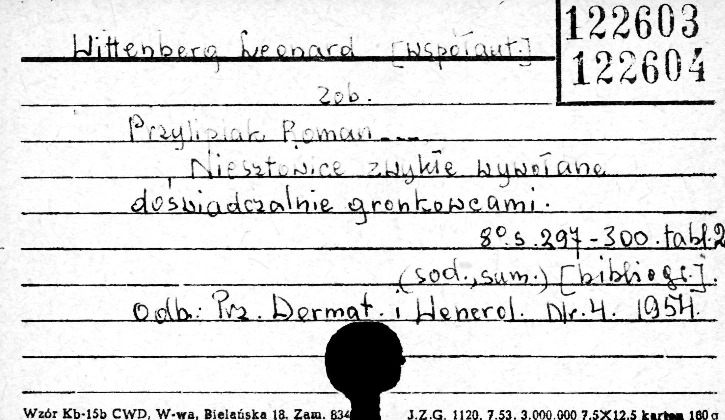 122603
122604
Wittenberg Leonard [współaut.]
zob.
Przylipiak Roman...
Niesztowice zwykłe wywołane
doświadczalnie gronkowcami.
8º.s.297-300.tabl.2
(sod.,sum.) [bibliogr.].
Odb: Prz. Dermat. i Wenerol. Nr.4. 1954.
Wzór Kb-15b CWD, W-wa, Bielańska 18. Zam. 834
J.Z.G. 1120. 7.53. 3.000.000 7.5X12.5 karton 180 g